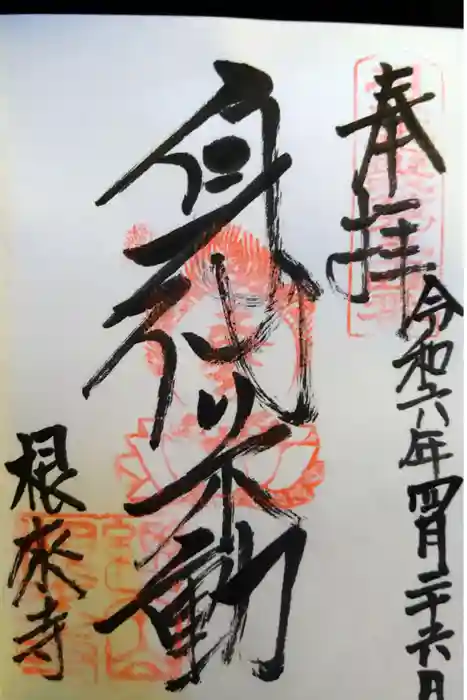 奉拝
令和六年四月二十六日
身代り不動
根来寺